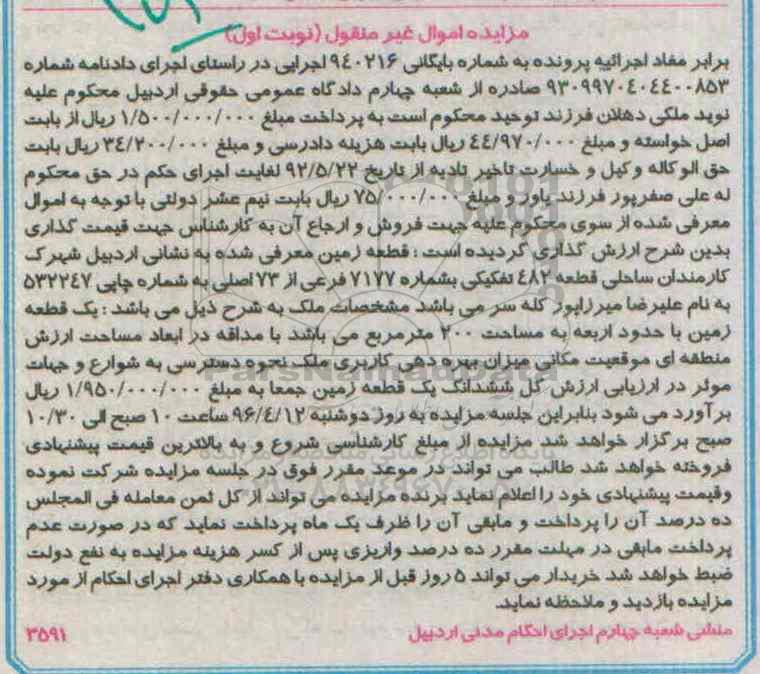 مزایده اموال غیر منقول (نوبت اول)
برابر مفاد اجرائیه پرونده به شماره بایگانی ۹۴۰۲۱۶ اجرایی در راستای اجرای دادنامه شماره
۹۳۰۹۹۷۰۴۰۴۴۰۰۸۵۳ صادره از شعبه چهارم دادگاه عمومی حقوقی اردبیل محکوم علیه
نوید ملکی دهلان فرزند توحید محکوم است به پرداخت مبلغ ۱/۵۰۰/۰۰۰/۰۰۰ ریال از بابت
اصل خواسته و مبلغ ۴۴/۹۷۰/۰۰۰ ریال بابت هزینه دادرسی و مبلغ ۳۴/۲۰۰/۰۰۰ ریال بابت
حق الوکاله وکیل و خسارت تاخیر تادیه از تاریخ ۹۲/۵/۲۲ لغایت اجرای حکم در حق محکوم
له علی صفرپور فرزند یاور و مبلغ ۷۵/۰۰۰/۰۰۰ ریال بابت نیم عشر دولتی با توجه به اموال
معرفی شده از سوی محکوم علیه جهت فروش و ارجاع آن به کارشناس جهت قیمت گذاری
بدین شرح ارزش گذاری گردیده است : قطعه زمین معرفی شده به نشانی اردبیل شهرک
کارمندان ساحلی قطعه ۴۸۲ تفکیکی بشماره ۷۱۷۷ فرعی از ۷۳ اصلی به شماره چاپی ۵۳۲۲۴۷
به نام علیرضا میرزاپور کله سر می باشد مشخصات ملک به شرح ذیل می باشد : یک قطعه
زمین با حدود اربعه به مساحت ۲۰۰ مترمربع می باشد با مداقه در ابعاد مساحت ارزش
منطقه ای موقعیت مکانی میزان بهره دهی کاربری ملک نحوه دسترسی به شوارع و جهات
موثر در ارزیابی ارزش کل ششدانگ یک قطعه زمین جمعا به مبلغ ۱/۹۵۰/۰۰۰/۰۰۰ ریال
برآورد می شود بنابراین جلسه مزایده به روز دوشنبه ۹۶/۴/۱۲ ساعت ۱۰ صبح الی ۱۰/۳۰
صبح برگزار خواهد شد مزایده از مبلغ کارشناسی شروع و به بالاترین قیمت پیشنهادی
فروخته خواهد شد طالب می تواند در موعد مقرر فوق در جلسه مزایده شرکت نموده
وقیمت پیشنهادی خود را اعلام نماید برنده مزایده می تواند از کل ثمن معامله فی المجلس
ده درصد آن را پرداخت و مابقی آن را ظرف یک ماه پرداخت نماید که در صورت عدم
پرداخت مابقی در مهلت مقرر ده درصد واریزی پس از کسر هزینه مزایده به نفع دولت
ضبط خواهد شد خریدار می تواند ۵ روز قبل از مزایده با همکاری دفتر اجرای احکام از مورد
مزایده بازدید و ملاحظه نماید.
منشی شعبه چهارم اجرای احکام مدنی اردبیل
۳۵۹۱